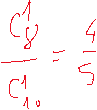 \frac{C_8^1}{C_{10}^1} = \frac{4}{5}